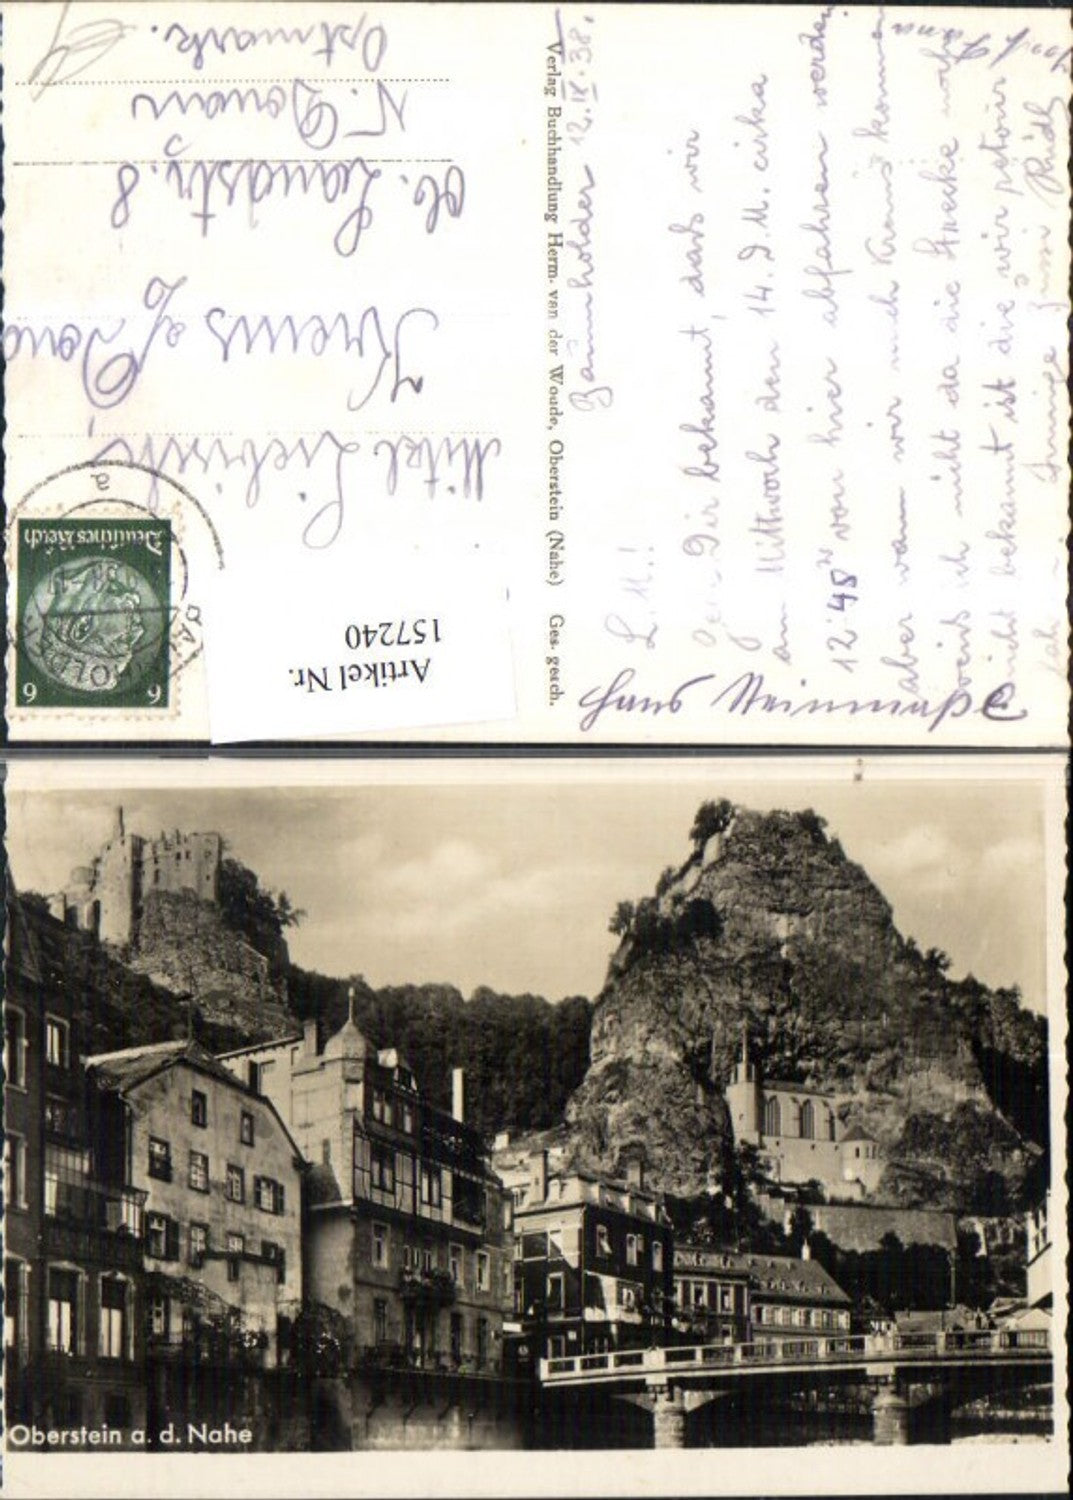 Baumholder 12.IX.38.
L. M.!
Dir bekannt, dass wir
am Mittwoch den 14. d. M. cirka
12.48 von hier abfahren werden
aber wann wir nach Krems kommen
weiss ich nicht da die Strecke noch
nicht bekannt ist die wir retour
Innige Bussi Rudl
Hans
Verlag Buchhandlung Herm. van der Woude, Oberstein (Nahe) Ges. gesch.
Mitzl
Krems a/ Donau
Ob. Landstr. 8
N. Donau
Ostmark.
Deutsches Reich
6 6
Artikel Nr.
157240
Oberstein a. d. Nahe